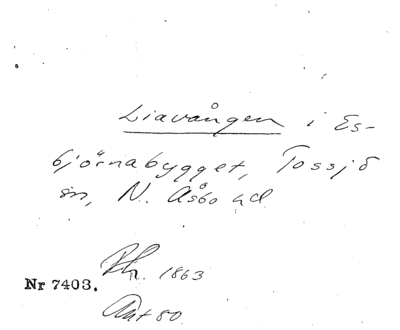 Liavången i Es-
björnabygget, Tossjö
sn, N. Åsbo hd
Rh. 1863
Nr 7403.
Ant 80